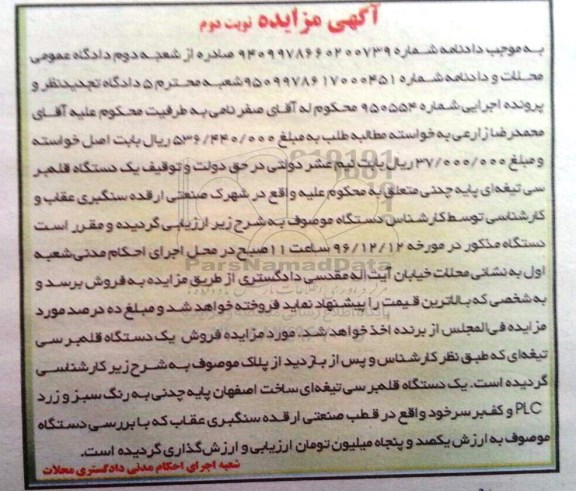 آگهی مزایده نوبت دوم
به موجب دادنامه شماره ۹۴۰۹۹۷۸۶۶۰۲۰۰۷۳۹ صادره از شعبه دوم دادگاه عمومی
محلات و دادنامه شماره ۹۵۰۹۹۷۸۶۱۷۰۰۰۴۵۱ شعبه محترم ۵ دادگاه تجدیدنظر و
پرونده اجرایی شماره ۹۵۰۵۵۴ محکوم له آقای صفر نامی به طرفیت محکوم علیه آقای
محمدرضا زارعی به خواسته مطالبه طلب به مبلغ ۵۳۶/۴۴۰/۰۰۰ ریال بابت اصل خواسته
و مبلغ ۳۷/۰۰۰/۰۰۰ ریال بابت نیم عشر دولتی در حق دولت و توقیف یک دستگاه قله بر
سی تیغه‌ای پایه چدنی متعلق به محکوم علیه واقع در شهرک صنعتی ارقده سنگبری عقاب و
کارشناسی توسط کارشناس دستگاه موصوف به شرح زیر ارزیابی گردیده و مقرر است
دستگاه مذکور در مورخه ۹۶/۱۲/۱۲ ساعت ۱۱ صبح در محل اجرای احکام مدنی شعبه
اول به نشانی محلات خیابان آیت اله مقدسی دادگستری از طریق مزایده به فروش برسد و
به شخصی که بالاترین قیمت را پیشنهاد نماید فروخته خواهد شد و مبلغ ده درصد مورد
مزایده فی المجلس از برنده اخذ خواهد شد. مورد مزایده فروش یک دستگاه قله بر سی
تیغه‌ای که طبق نظر کارشناس و پس از بازدید از پلاک موصوف به شرح زیر کارشناسی
گردیده است. یک دستگاه قله بر سی تیغه‌ای ساخت اصفهان پایه چدنی به رنگ سبز و زرد
PLC و کف بر سر خود واقع در قطب صنعتی ارقده سنگبری عقاب که با بررسی دستگاه
موصوف به ارزش یکصد و پنجاه میلیون تومان ارزیابی و ارزش گذاری گردیده است.
شعبه اجرای احکام مدنی دادگستری محلات
ParsNamadData